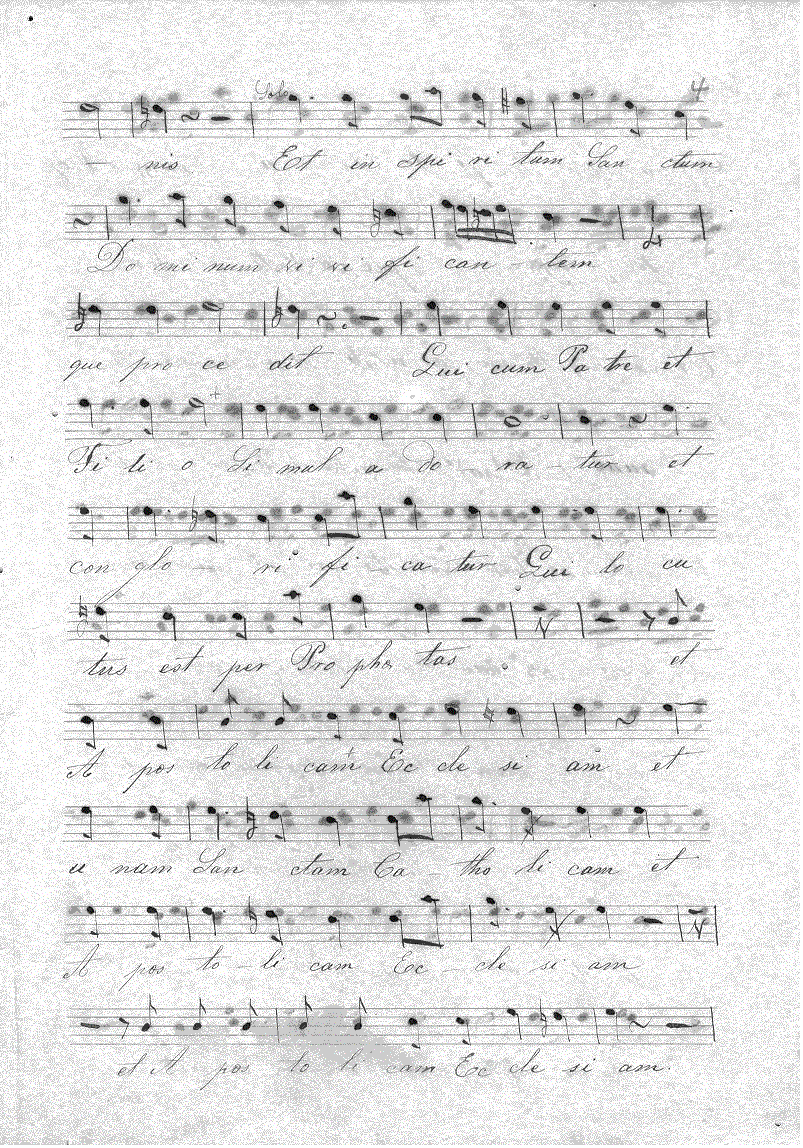 4
Solo
- nis Et in Spi ri tum San ctum
Do mi num vi vi fi can - tem
que pro ce dit Qui cum Pa tre et
Fi li o Si mul a do - ra - tur et
con glo - ri fi - ca tur Qui lo cu
tus est per Pro phe tas et
A pos to li cam Ec cle si am et
u nam San ctam Ca - tho li cam et
A pos to - li cam Ec - cle si am
et A pos to li cam Ec cle si am.